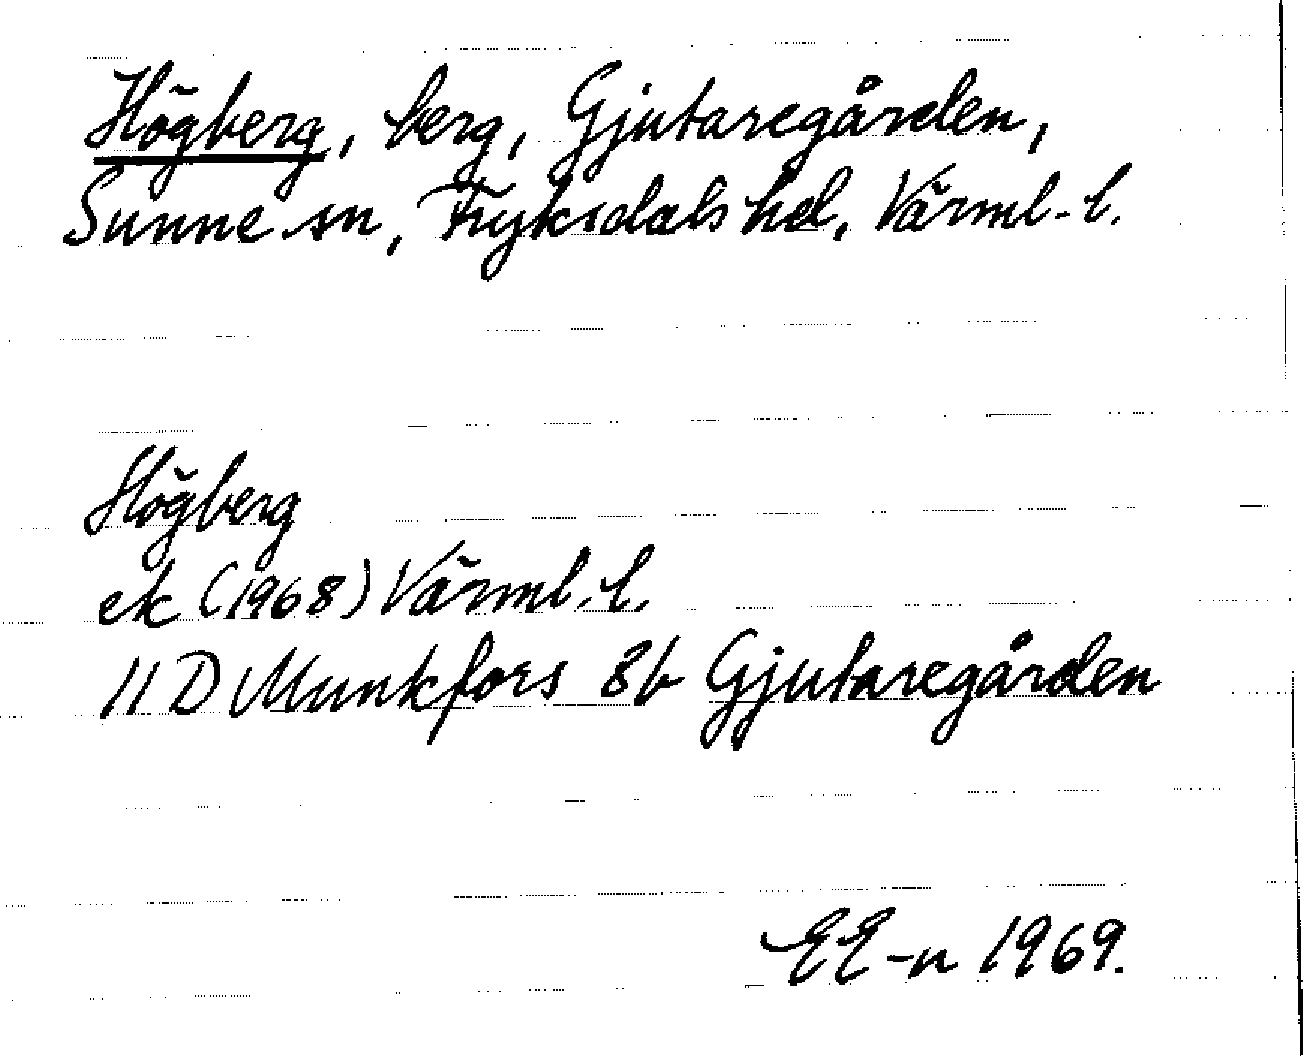 Högberg, berg, Gjutaregården,
Sunne sn, Fryksdals hd, Värml. l.
Högberg
ek (1968) Värml. l.
11 D Munkfors 8b Gjutaregården
EE-n 1969.